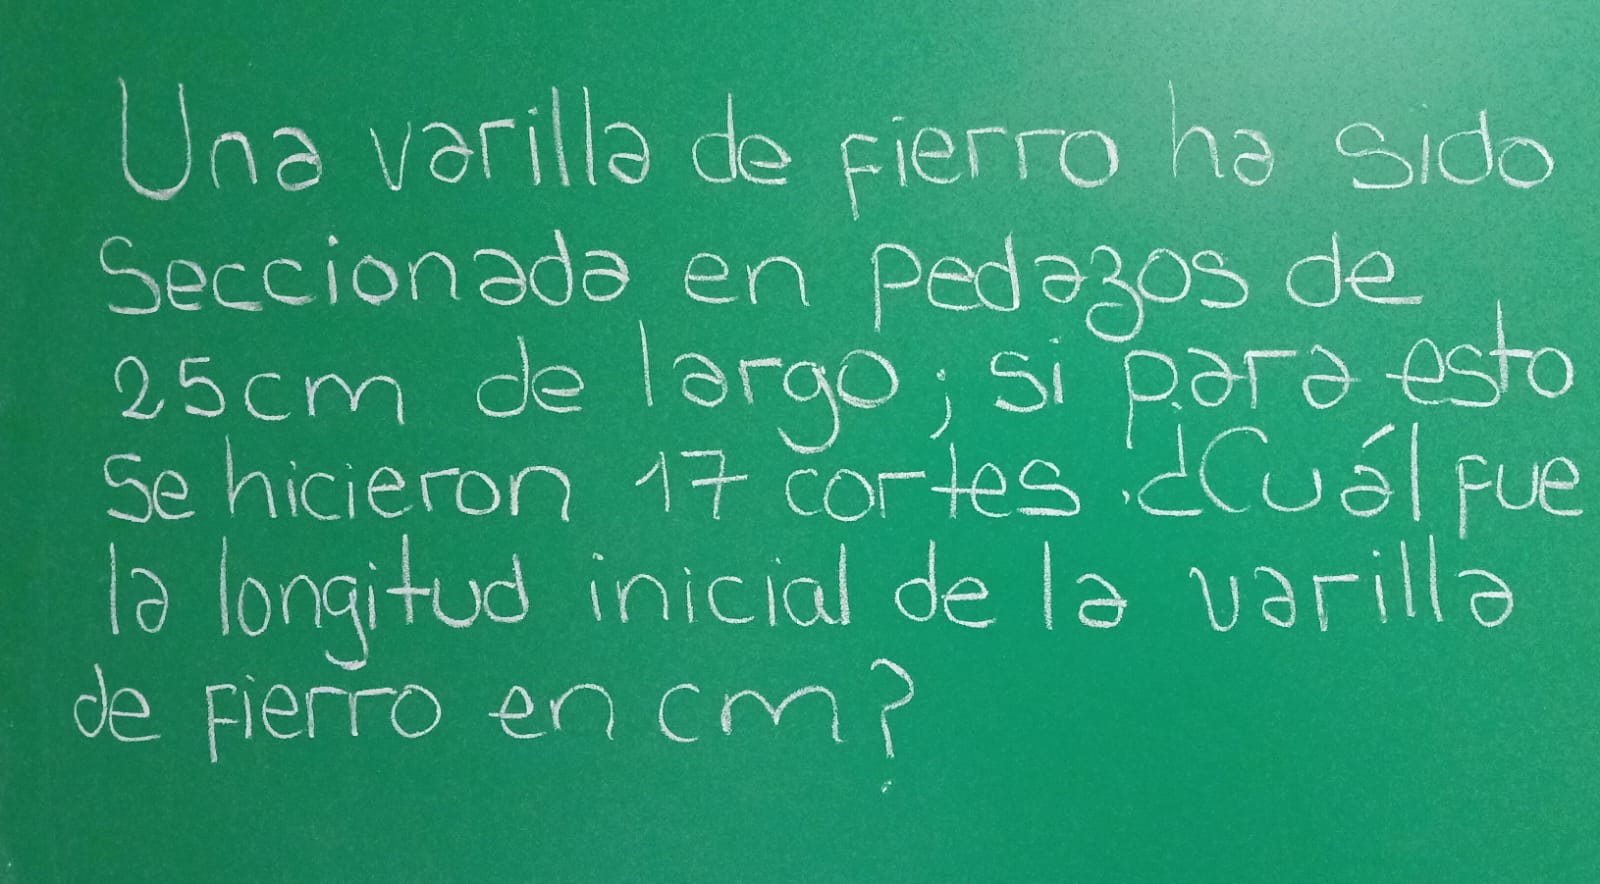 Una varilla de fierro ha sido
Seccionada en pedazos de
25cm de largo; si para esto
Se hicieron 17 cortes. ¿Cuál fue
la longitud inicial de la varilla
de fierro en cm?